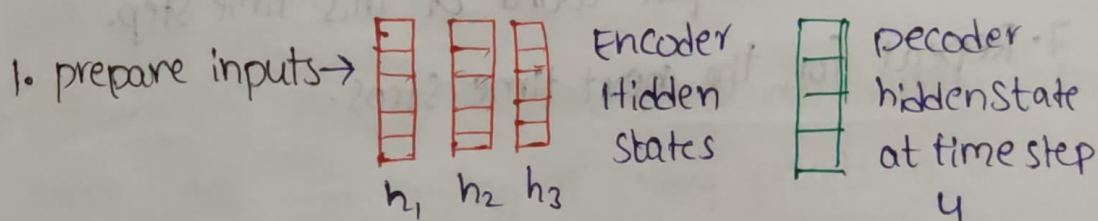 1. prepare inputs→
h₁ h₂ h₃
Encoder
Hidden
States
Decoder
hidden state
at time step
4